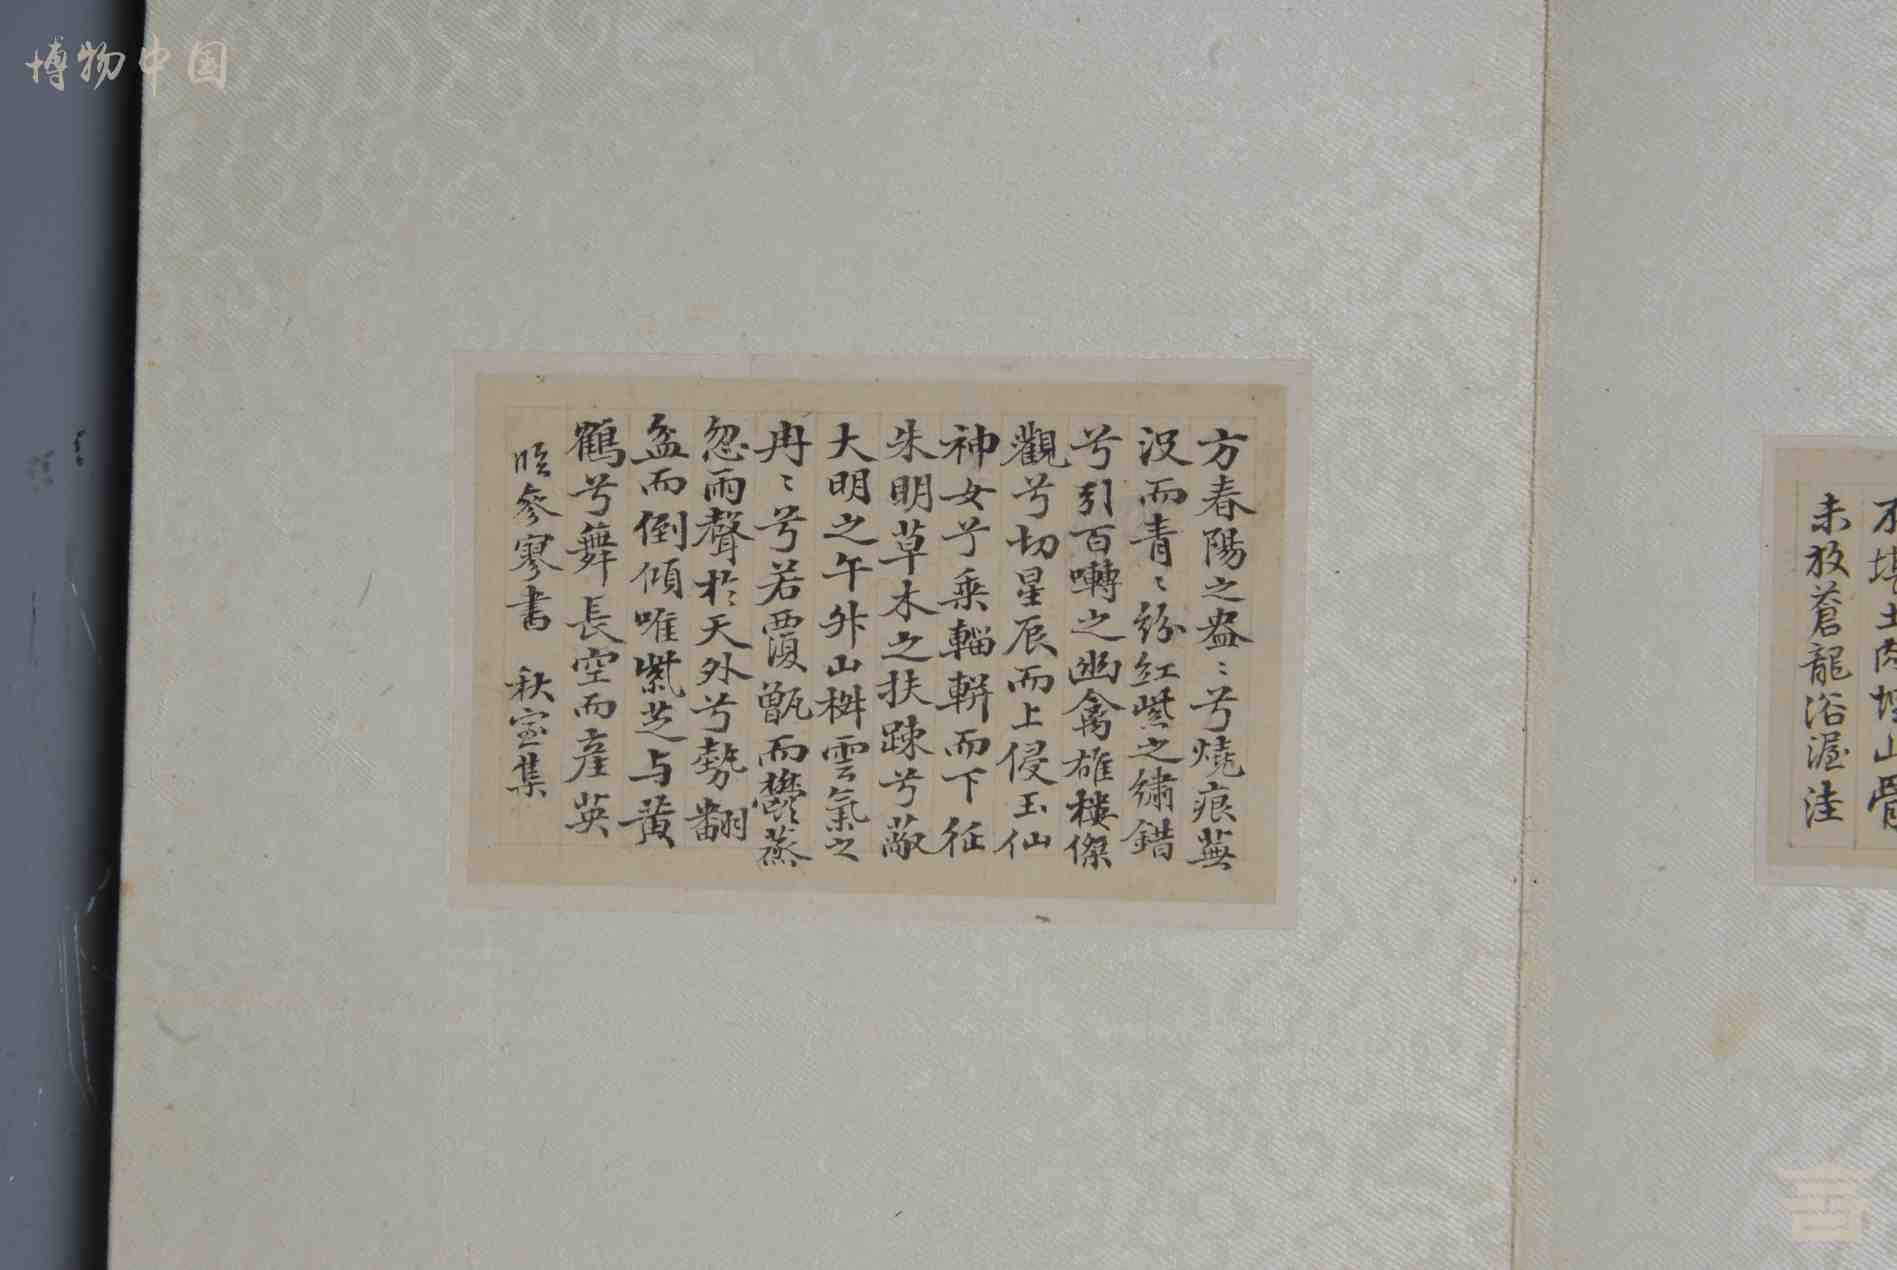 博物中国
方春陽之盎〻兮燒痕蕪
沒而青〻紛紅紫之繡錯
兮引百囀之幽禽雄樓傑
觀兮切星辰而上侵玉仙
神女兮乘輜軿而下征
朱明草木之扶踈兮蔽
大明之午升山椒雲氣之
冉〻兮若覆甑而鬱蒸
忽雨聲於天外兮勢翻
盆而倒傾唯紫芝与黃
鶴兮舞長空而產英
臨參寥書 秋室集
不填土肉埋山骨
未放蒼龍浴渥洼